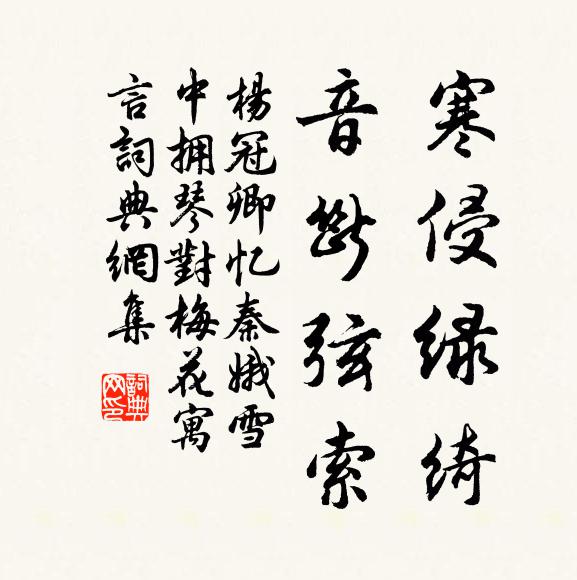 寒侵绿绮
音断弦索
楊冠卿忆秦娥雪
中拥琴對梅花寓
言詞典網集
詞典网印